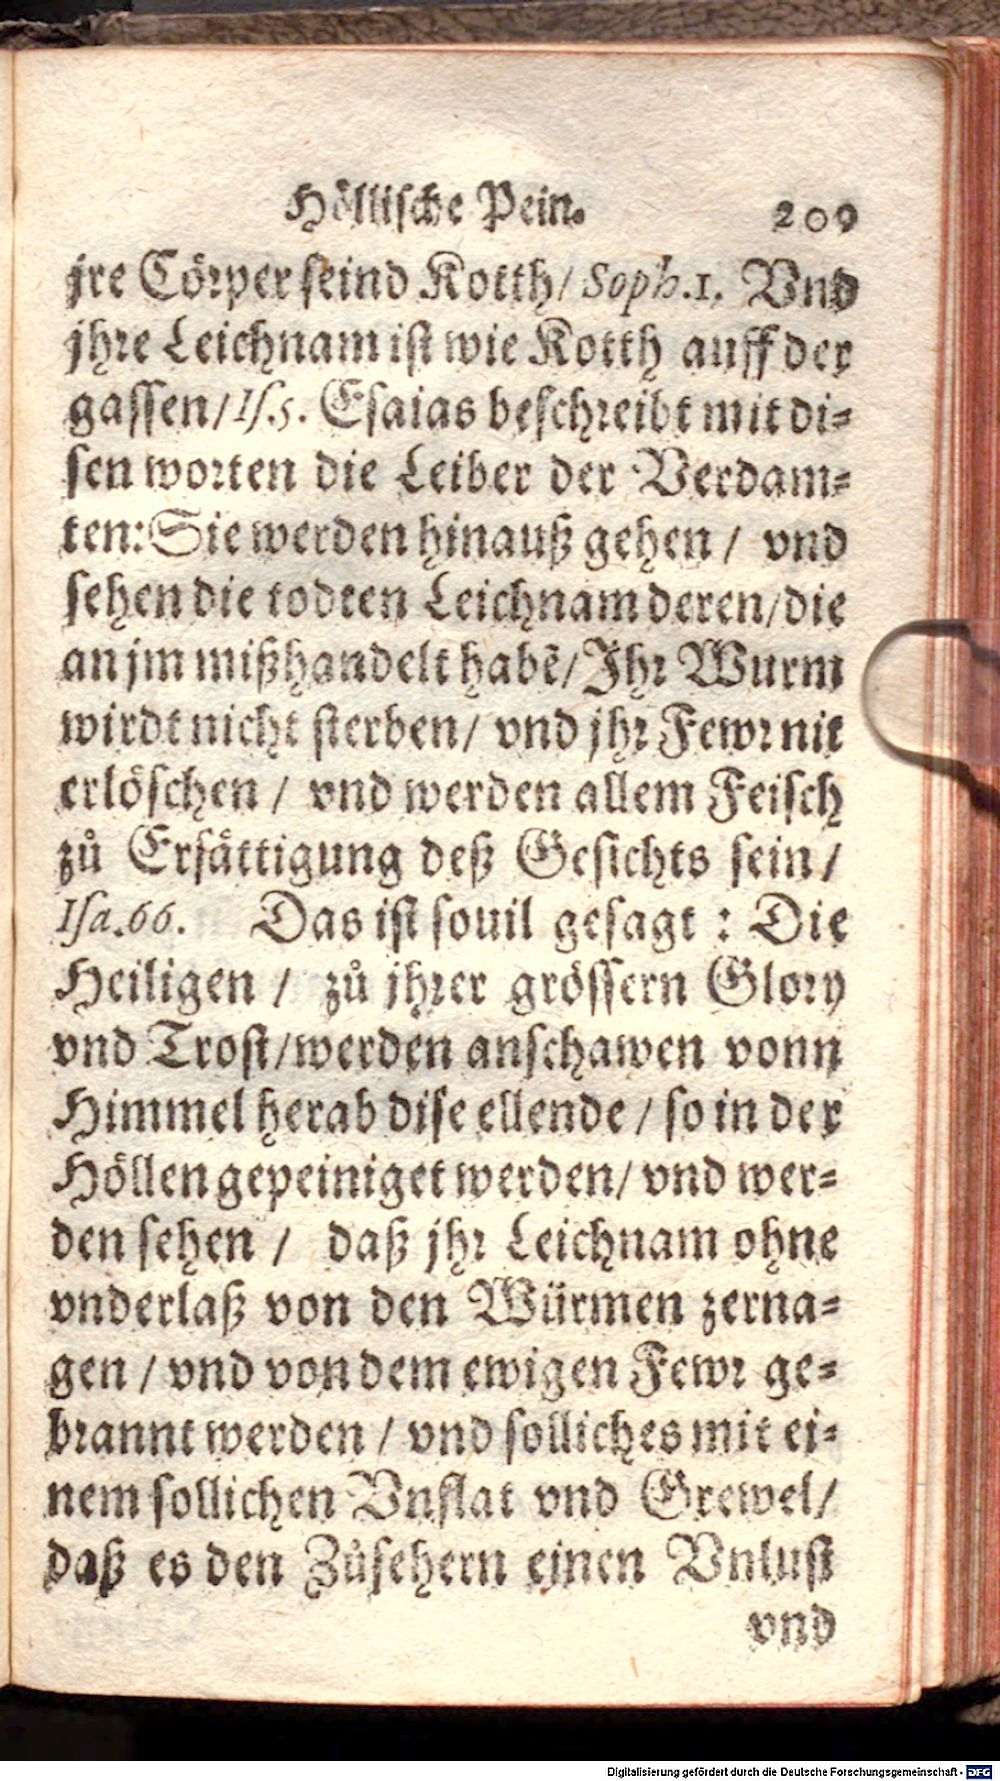 Höllische Pein. 209
jre Cörper seind Kotth/ Soph.1. Vnd
jhre Leichnam ist wie Kotth auff der
gassen/Is.5. Esaias beschreibt mit di-
sen worten die Leiber der Verdam-
ten: Sie werden hinauß gehen / vnd
sehen die todten Leichnam deren/die
an jm mißhandelt habẽ/Jhr Wurm
wirdt nicht sterben/ vnd jhr Fewr nit
erlöschen / vnd werden allem Feisch
zů Ersättigung deß Gesichts sein/
Isa.66. Das ist souil gesagt : Die
Heiligen / zů jhrer grössern Glory
vnd Trost/werden anschawen vonn
Himmel herab dise ellende / so in der
Höllen gepeiniget werden/ vnd wer-
den sehen / daß jhr Leichnam ohne
vnderlaß von den Würmen zerna-
gen / vnd von dem ewigen Fewr ge-
brannt werden / vnd solliches mit ei-
nem sollichen Vnflat vnd Grewel/
daß es den Zůsehern einen Vnlust
vnd
Digitalisierung gefördert durch die Deutsche Forschungsgemeinschaft - DFG